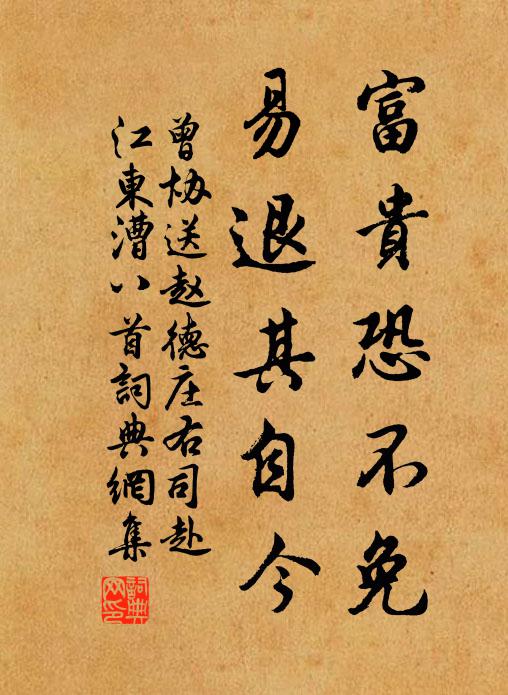 富貴恐不免
易退其自今
曾協送赵德庄右司赴
江東漕八首詞典網集
詞典网印